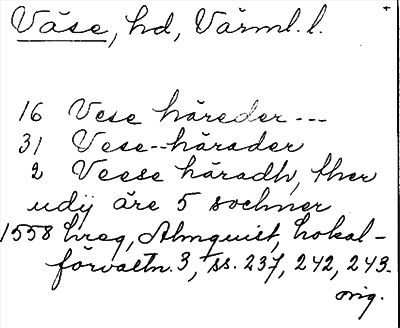 Väse, hd, Värml. l.
16 Vese häreder ---
31 Vese--härader
2 Veese häradh, ther
udij äre 5 sochner
1558 hreg, Almquist, Lokal-
förvaltn. 3, ss. 237, 242, 243.
orig.